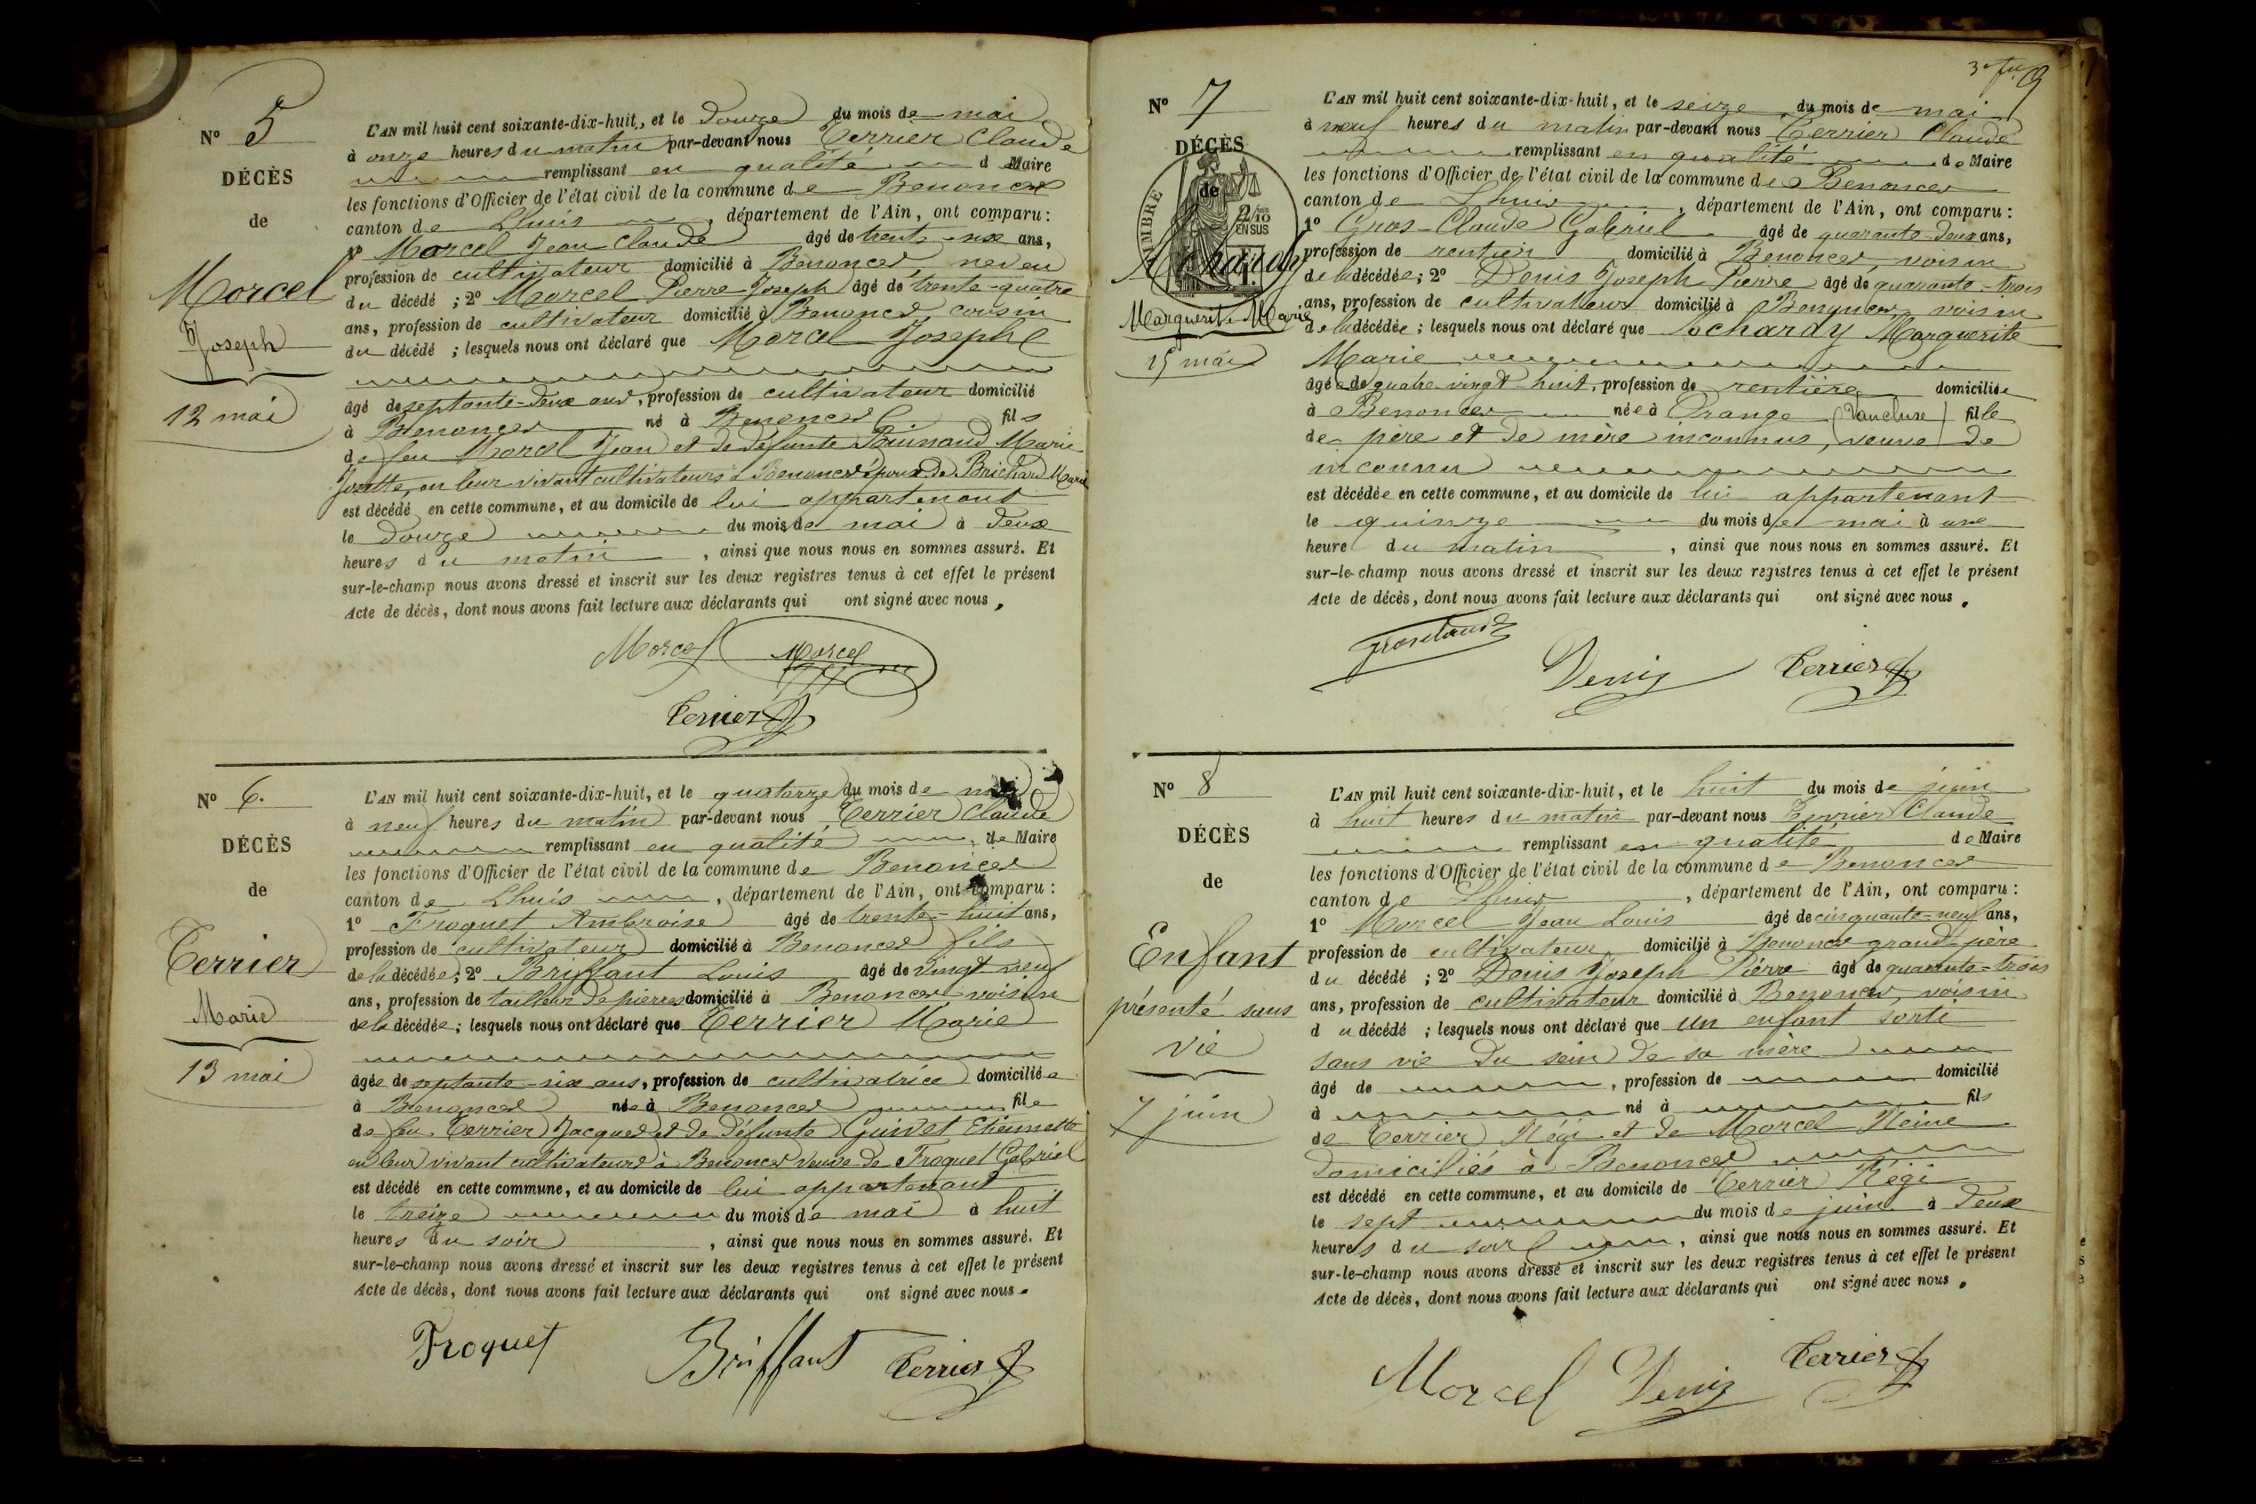 N° 5
DÉCÈS
de
Morcel
Joseph
12 mai
L'AN mil huit cent soixante-dix-huit, et le douze du mois de mai
à onze heures du matin par-devant nous Terrier Claude
remplissant en qualité de Maire
les fonctions d'Officier de l'état civil de la commune de Benonces
canton de Lhuis, département de l'Ain, ont comparu :
1° Morcel Jean Claude âgé de trente-six ans,
profession de cultivateur domicilié à Benonces, neveu
du décédé ; 2° Morcel Pierre Joseph âgé de trente-quatre
ans, profession de cultivateur domicilié à Benonces, cousin
du décédé ; lesquels nous ont déclaré que Morcel Joseph
âgé de septante-deux ans, profession de cultivateur domicilié
à Benonces né à Benonces fils
de feu Morcel Jean et de défunte Marie
Josette, en leur vivant cultivateurs à Benonces époux de Brichard Marie
est décédé en cette commune, et au domicile de lui appartenant
le douze du mois de mai à deux
heures du matin, ainsi que nous nous en sommes assuré. Et
sur-le-champ nous avons dressé et inscrit sur les deux registres tenus à cet effet le présent
Acte de décès, dont nous avons fait lecture aux déclarants qui ont signé avec nous.
Morcel Morcel
Terrier
N° 6.
DÉCÈS
de
Terrier
Marie
13 mai
L'AN mil huit cent soixante-dix-huit, et le quatorze du mois de mai
à neuf heures du matin par-devant nous Terrier Claude
remplissant en qualité de Maire
les fonctions d'Officier de l'état civil de la commune de Benonces
canton de Lhuis, département de l'Ain, ont comparu :
1° Froquet Ambroise âgé de trente-huit ans,
profession de cultivateur domicilié à Benonces fils
de la décédée ; 2° Briffaut Louis âgé de vingt neuf
ans, profession de tailleur de pierres domicilié à Benonces voisin
de la décédée ; lesquels nous ont déclaré que Terrier Marie
âgée de septante-six ans, profession de cultivatrice domiciliée
à Benonces née à Benonces fille
de feu Terrier Jacques et de défunte Guinet Etiennette
en leur vivant cultivateurs à Benonces veuve de Froquet Gabriel
est décédé en cette commune, et au domicile de lui appartenant
le treize du mois de mai à huit
heures du soir, ainsi que nous nous en sommes assuré. Et
sur-le-champ nous avons dressé et inscrit sur les deux registres tenus à cet effet le présent
Acte de décès, dont nous avons fait lecture aux déclarants qui ont signé avec nous.
Froquet Briffaut Terrier
3e
N° 7
DÉCÈS
de
TIMBRE
2/10 EN SUS
Marguerite Marie
15 mai
L'AN mil huit cent soixante-dix-huit, et le seize du mois de mai
à neuf heures du matin par-devant nous Terrier Claude
remplissant en qualité de Maire
les fonctions d'Officier de l'état civil de la commune de Benonces
canton de Lhuis, département de l'Ain, ont comparu :
1° Gros-Claude Gabriel âgé de quarante-deux ans,
profession de rentier domicilié à Benonces, voisin
de la décédée ; 2° Denis Joseph Pierre âgé de quarante-trois
ans, profession de cultivateur domicilié à Benonces, voisin
de la décédée ; lesquels nous ont déclaré que Marguerite
Marie
âgée de quatre vingt huit, profession de rentière domiciliée
à Benonces née à Orange (Vaucluse) fille
de père et de mère inconnus, veuve de
inconnu
est décédée en cette commune, et au domicile de lui appartenant
le quinze du mois de mai à une
heure du matin, ainsi que nous nous en sommes assuré. Et
sur-le-champ nous avons dressé et inscrit sur les deux registres tenus à cet effet le présent
Acte de décès, dont nous avons fait lecture aux déclarants qui ont signé avec nous.
Grosclaude Denis Terrier
N° 8
DÉCÈS
de
Enfant
présenté sans
vie
7 juin
L'AN mil huit cent soixante-dix-huit, et le huit du mois de juin
à huit heures du matin par-devant nous Terrier Claude
remplissant en qualité de Maire
les fonctions d'Officier de l'état civil de la commune de Benonces
canton de Lhuis, département de l'Ain, ont comparu :
1° Morcel Jean Louis âgé de cinquante-neuf ans,
profession de cultivateur domicilié à Benonces grand-père
du décédé ; 2° Denis Joseph Pierre âgé de quarante-trois
ans, profession de cultivateur domicilié à Benonces, voisin
du décédé ; lesquels nous ont déclaré que un enfant sorti
sans vie du sein de sa mère
âgé de , profession de domicilié
à né à fils
de Terrier Régi et de Morcel Reine
domiciliés à Benonces
est décédé en cette commune, et au domicile de Terrier Régi
le sept du mois de juin à deux
heures du soir, ainsi que nous nous en sommes assuré. Et
sur-le-champ nous avons dressé et inscrit sur les deux registres tenus à cet effet le présent
Acte de décès, dont nous avons fait lecture aux déclarants qui ont signé avec nous.
Morcel Denis Terrier